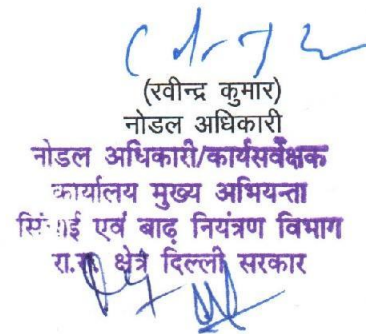 (रवीन्द्र कुमार)
नोडल अधिकारी
नोडल अधिकारी/कार्यसर्वेक्षक
कार्यालय मुख्य अभियन्ता
सिंचाई एवं बाढ़ नियंत्रण विभाग
रा.रा. क्षेत्र दिल्ली सरकार